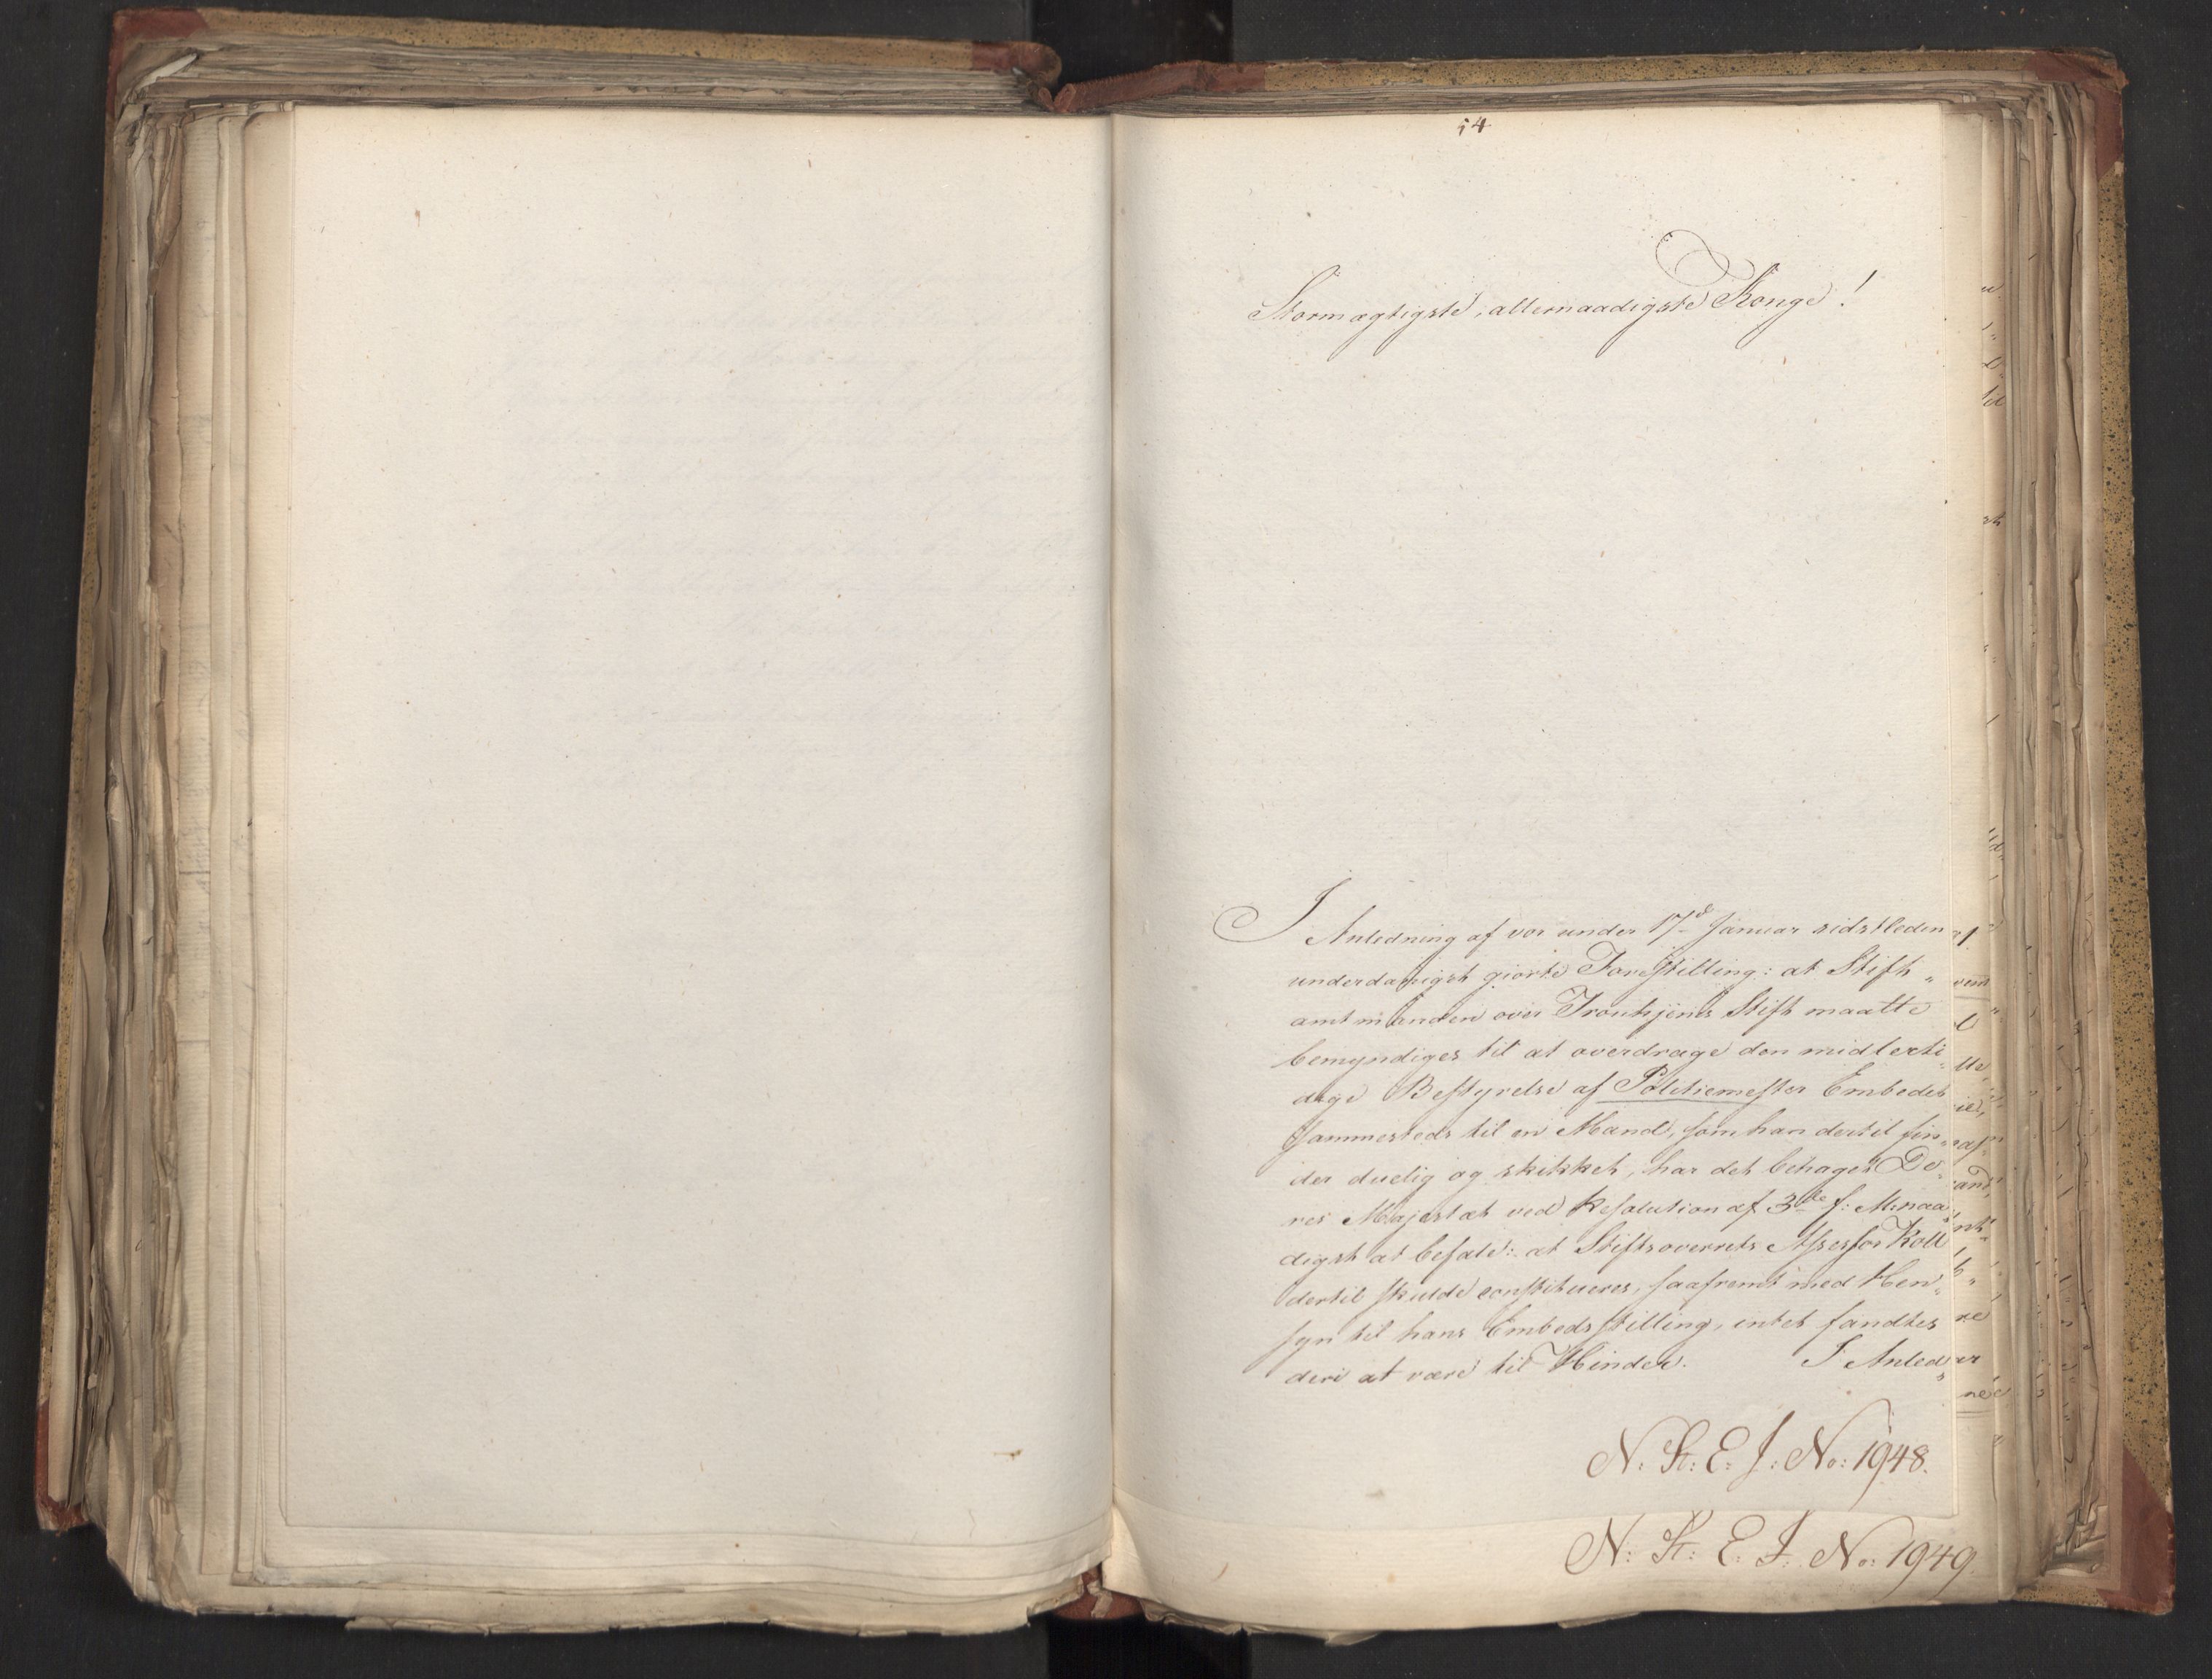 54
Stormægtigste, allernaadigste Konge!
I Anledning af vor under 17d Januar sidstleden
underdanigst giorte Forestilling: at Stift„
amtmanden over Tronhjems Stift maatte
bemyndiges til at overdrage den midlerti„
dige Bestyrelse af Politiemester Embedet
sammesteds til en Mand, som han dertil fin„
der duelig og skikket, har det behaget De„
res Majestæt ved Resolution af 3de f: M: naa„
digst at befale: at Stiftsoverrets Assessor Koll
dertil skulde constitueres, saafremt med Hen„
syn til hans Embedsstilling, intet fandtes
deri at være til Hinder. I Anled„
N. St: E: J: No: 1948.
N: St: E: J: No: 1949.